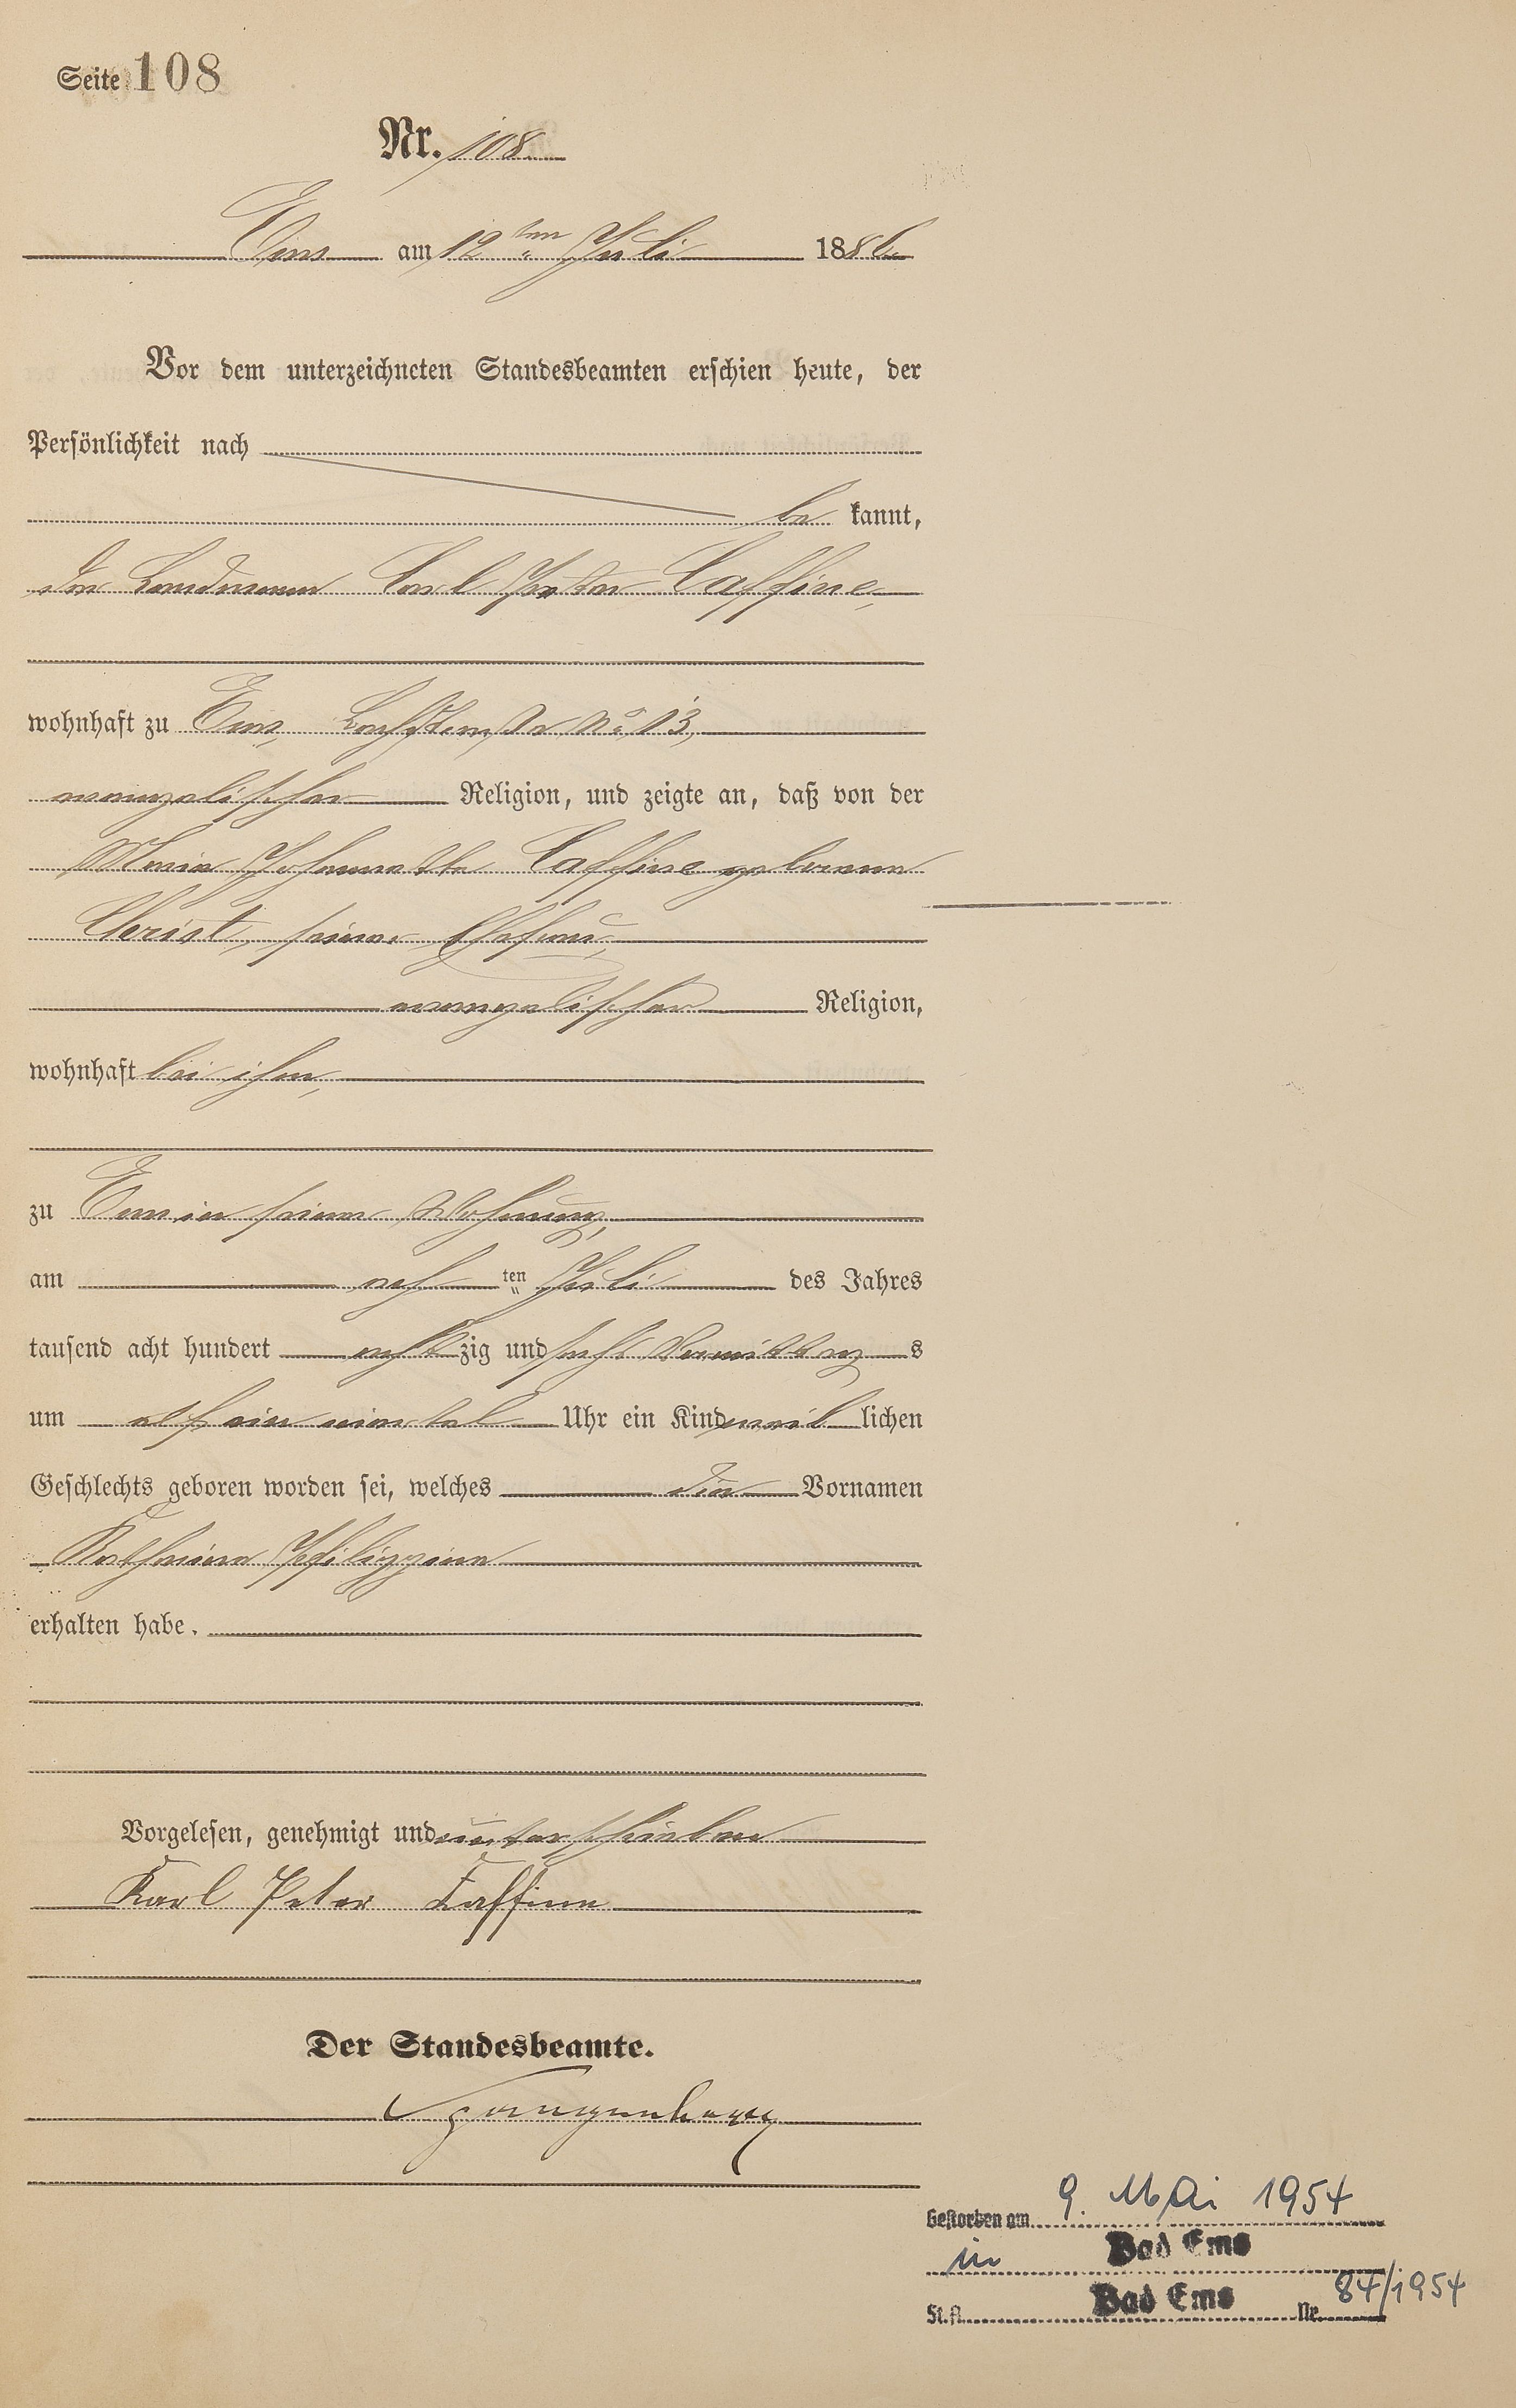 Seite 108
Nr. 108
Ems am 12ten Juli 1886
Vor dem unterzeichneten Standesbeamten erschien heute, der
Persönlichkeit nach
be kannt,
der Landmann Carl Peter Caffine,
wohnhaft zu Ems, No 13,
evangelischer Religion, und zeigte an, daß von der
Maria Johannette Caffine geborene
Christ, seiner Ehefrau,
evangelischer Religion,
wohnhaft bei ihm,
zu Ems in seiner Wohnung,
am ach ten Juli des Jahres
tausend acht hundert acht zig und sechs Vormittag s
um elf ein viertel Uhr ein Kind weib lichen
Geschlechts geboren worden sei, welches die Vornamen
Katharina Philippine
erhalten habe.
Vorgelesen, genehmigt und unterschrieben
Karl Peter Caffine
Der Standesbeamte.
Spangenberg
Gestorben am 9. Mai 1954
in Bad Ems
St.A. Bad Ems Nr. 84/1954